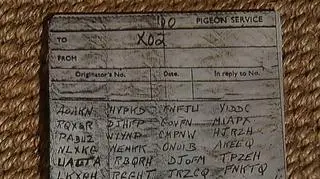 PIGEON SERVICE
TO X02
FROM
Originator's No. Date. In reply to No.
AOAKN HVPKD FNFJU YIDDC
RQXSR DJHFP GOVFN MIAPX
PABUZ WYYNP CMPNW HJRZH
NLXKG MEMKK ONOIB AKEEQ
UAOTA RBQRH DJOFM TPZEH
LKXGH RGGHT JRZCQ FNKTQ